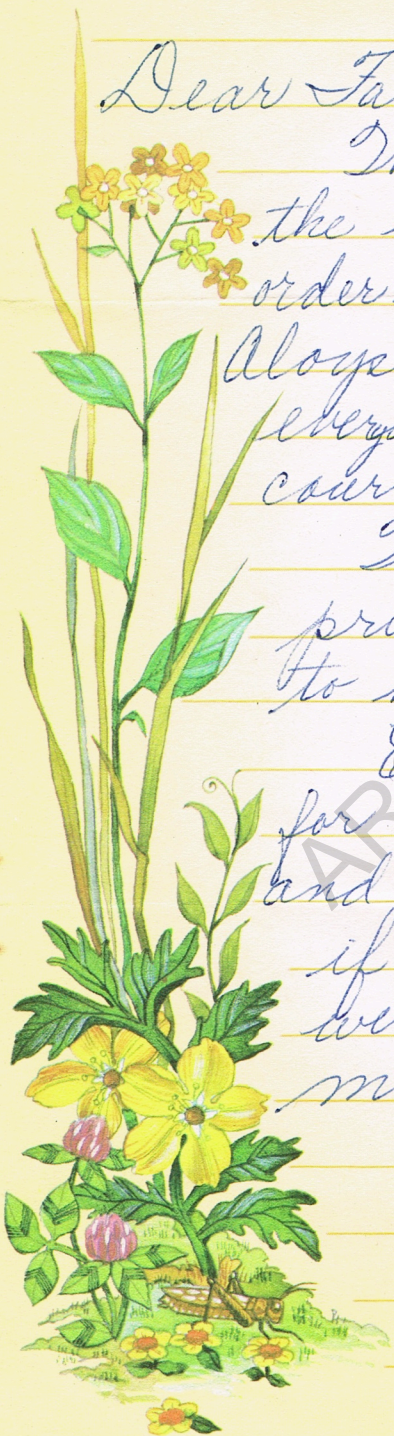 Dear Fa
Th
the
order
Aloys
every
cour
pri
to
for
and
if
we
m
AR